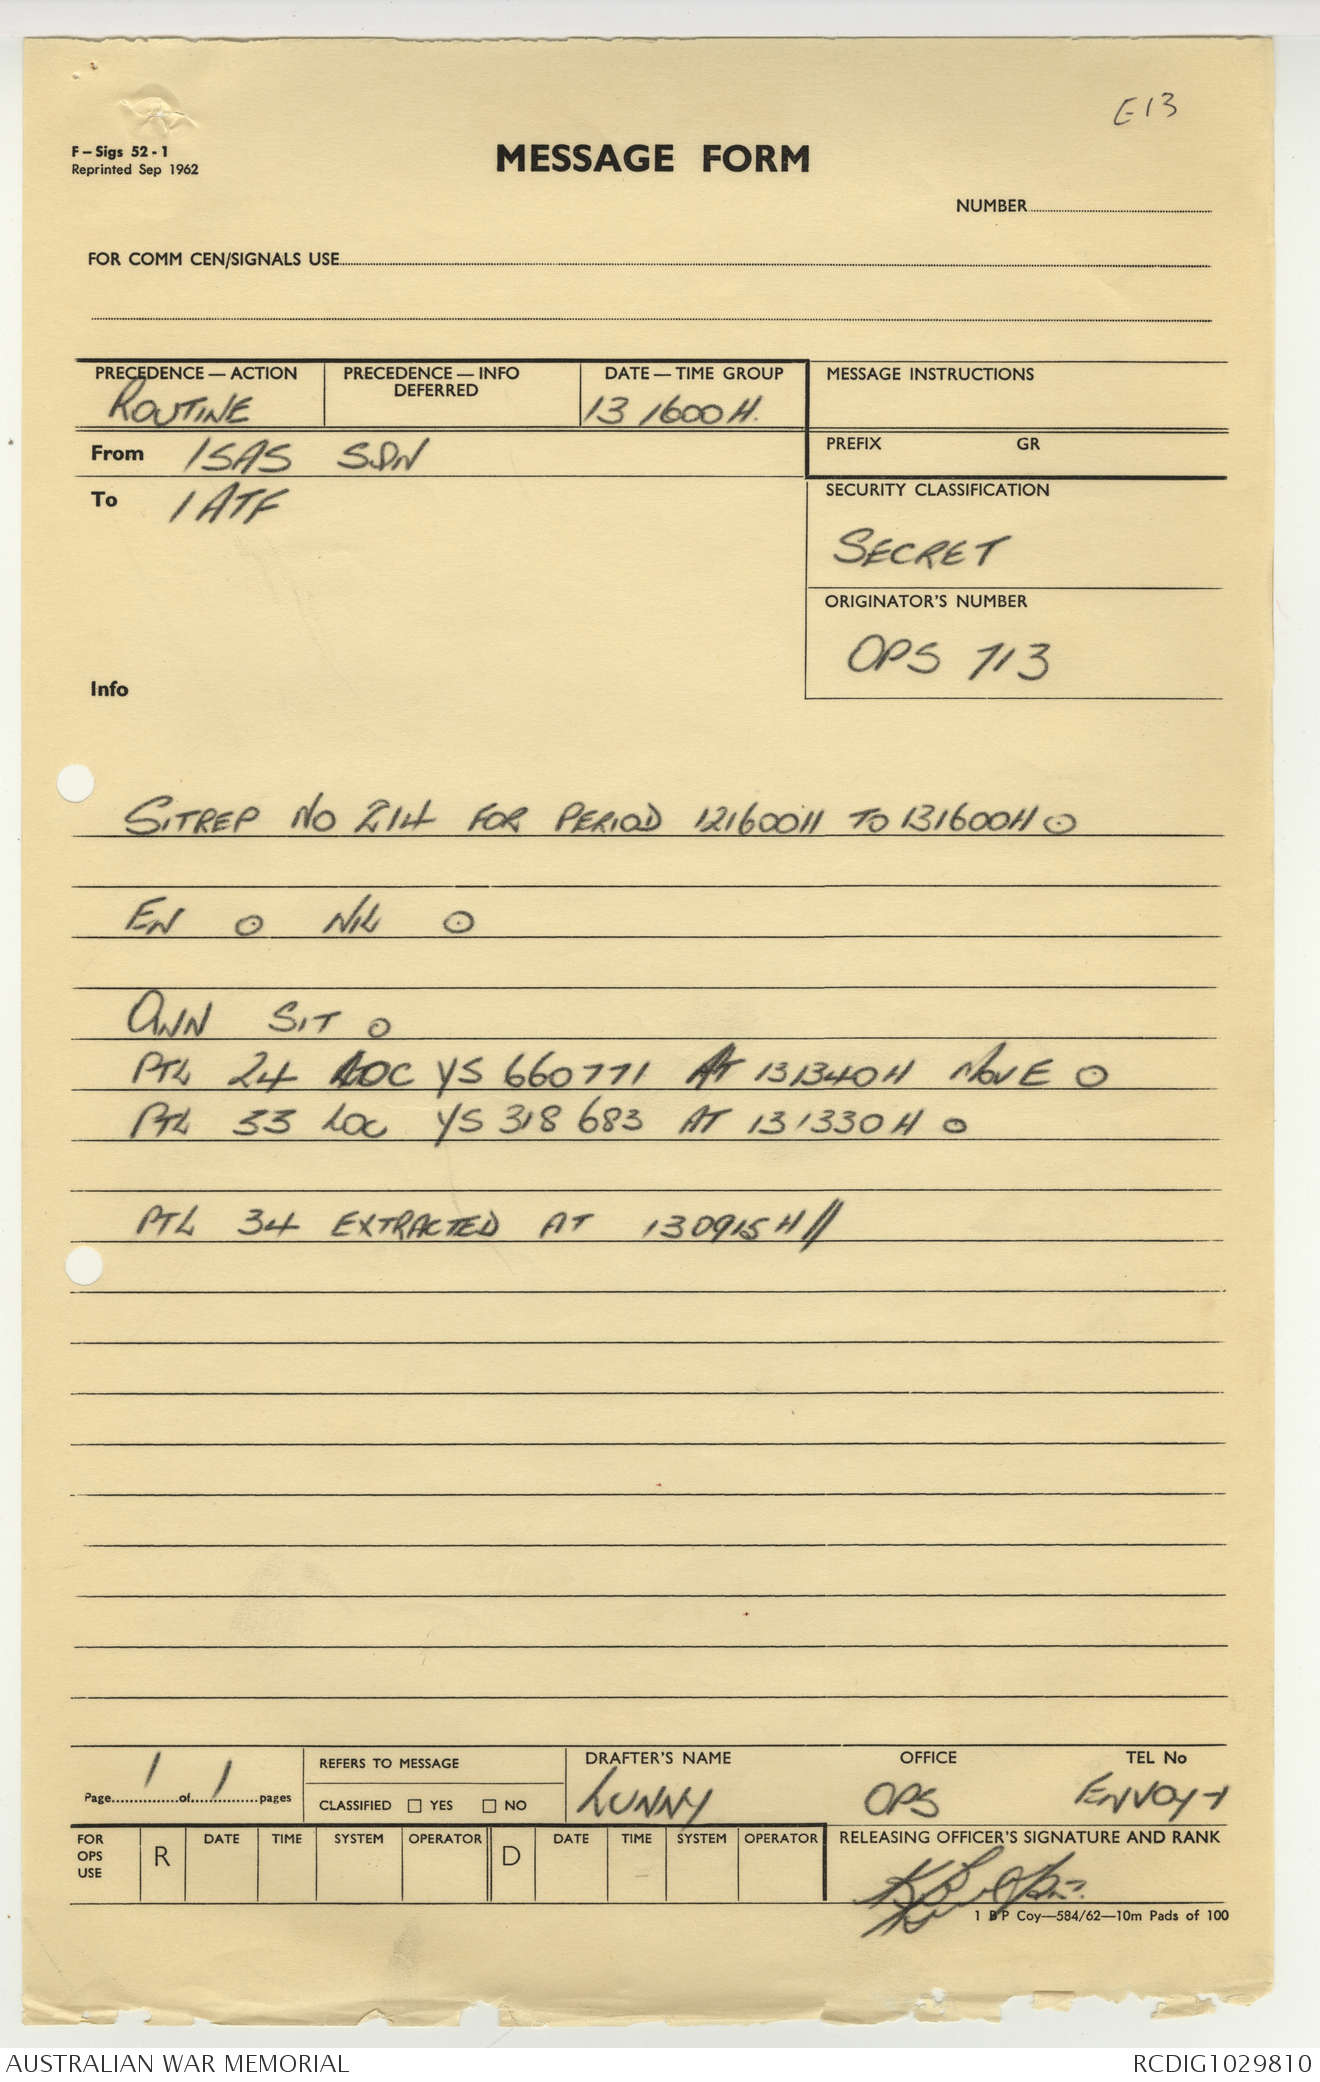 E13
F – Sigs 52 - 1
Reprinted Sep 1962
MESSAGE FORM
NUMBER
FOR COMM CEN/SIGNALS USE
PRECEDENCE — ACTION
ROUTINE
PRECEDENCE — INFO
DEFERRED
DATE — TIME GROUP
13 1600H.
MESSAGE INSTRUCTIONS
From 1SAS SQN
PREFIX GR
To 1 ATF
SECURITY CLASSIFICATION
SECRET
ORIGINATOR'S NUMBER
OPS 713
Info
SITREP NO 214 FOR PERIOD 121600H TO 131600H ⊙
EN ⊙ NIL ⊙
OWN SIT ⊙
PTL 24 LOC YS 660771 AT 131340H MOVE ⊙
PTL 33 LOC YS 318 683 AT 131330H ⊙
PTL 34 EXTRACTED AT 130915H//
Page 1 of 1 pages
REFERS TO MESSAGE
CLASSIFIED ☐ YES ☐ NO
DRAFTER'S NAME
LUNNY
OFFICE
OPS
TEL No
ENVOY 1
FOR
OPS
USE
R DATE TIME SYSTEM OPERATOR D DATE TIME SYSTEM OPERATOR
RELEASING OFFICER'S SIGNATURE AND RANK
1 BP Coy—584/62—10m Pads of 100
AUSTRALIAN WAR MEMORIAL
RCDIG1029810